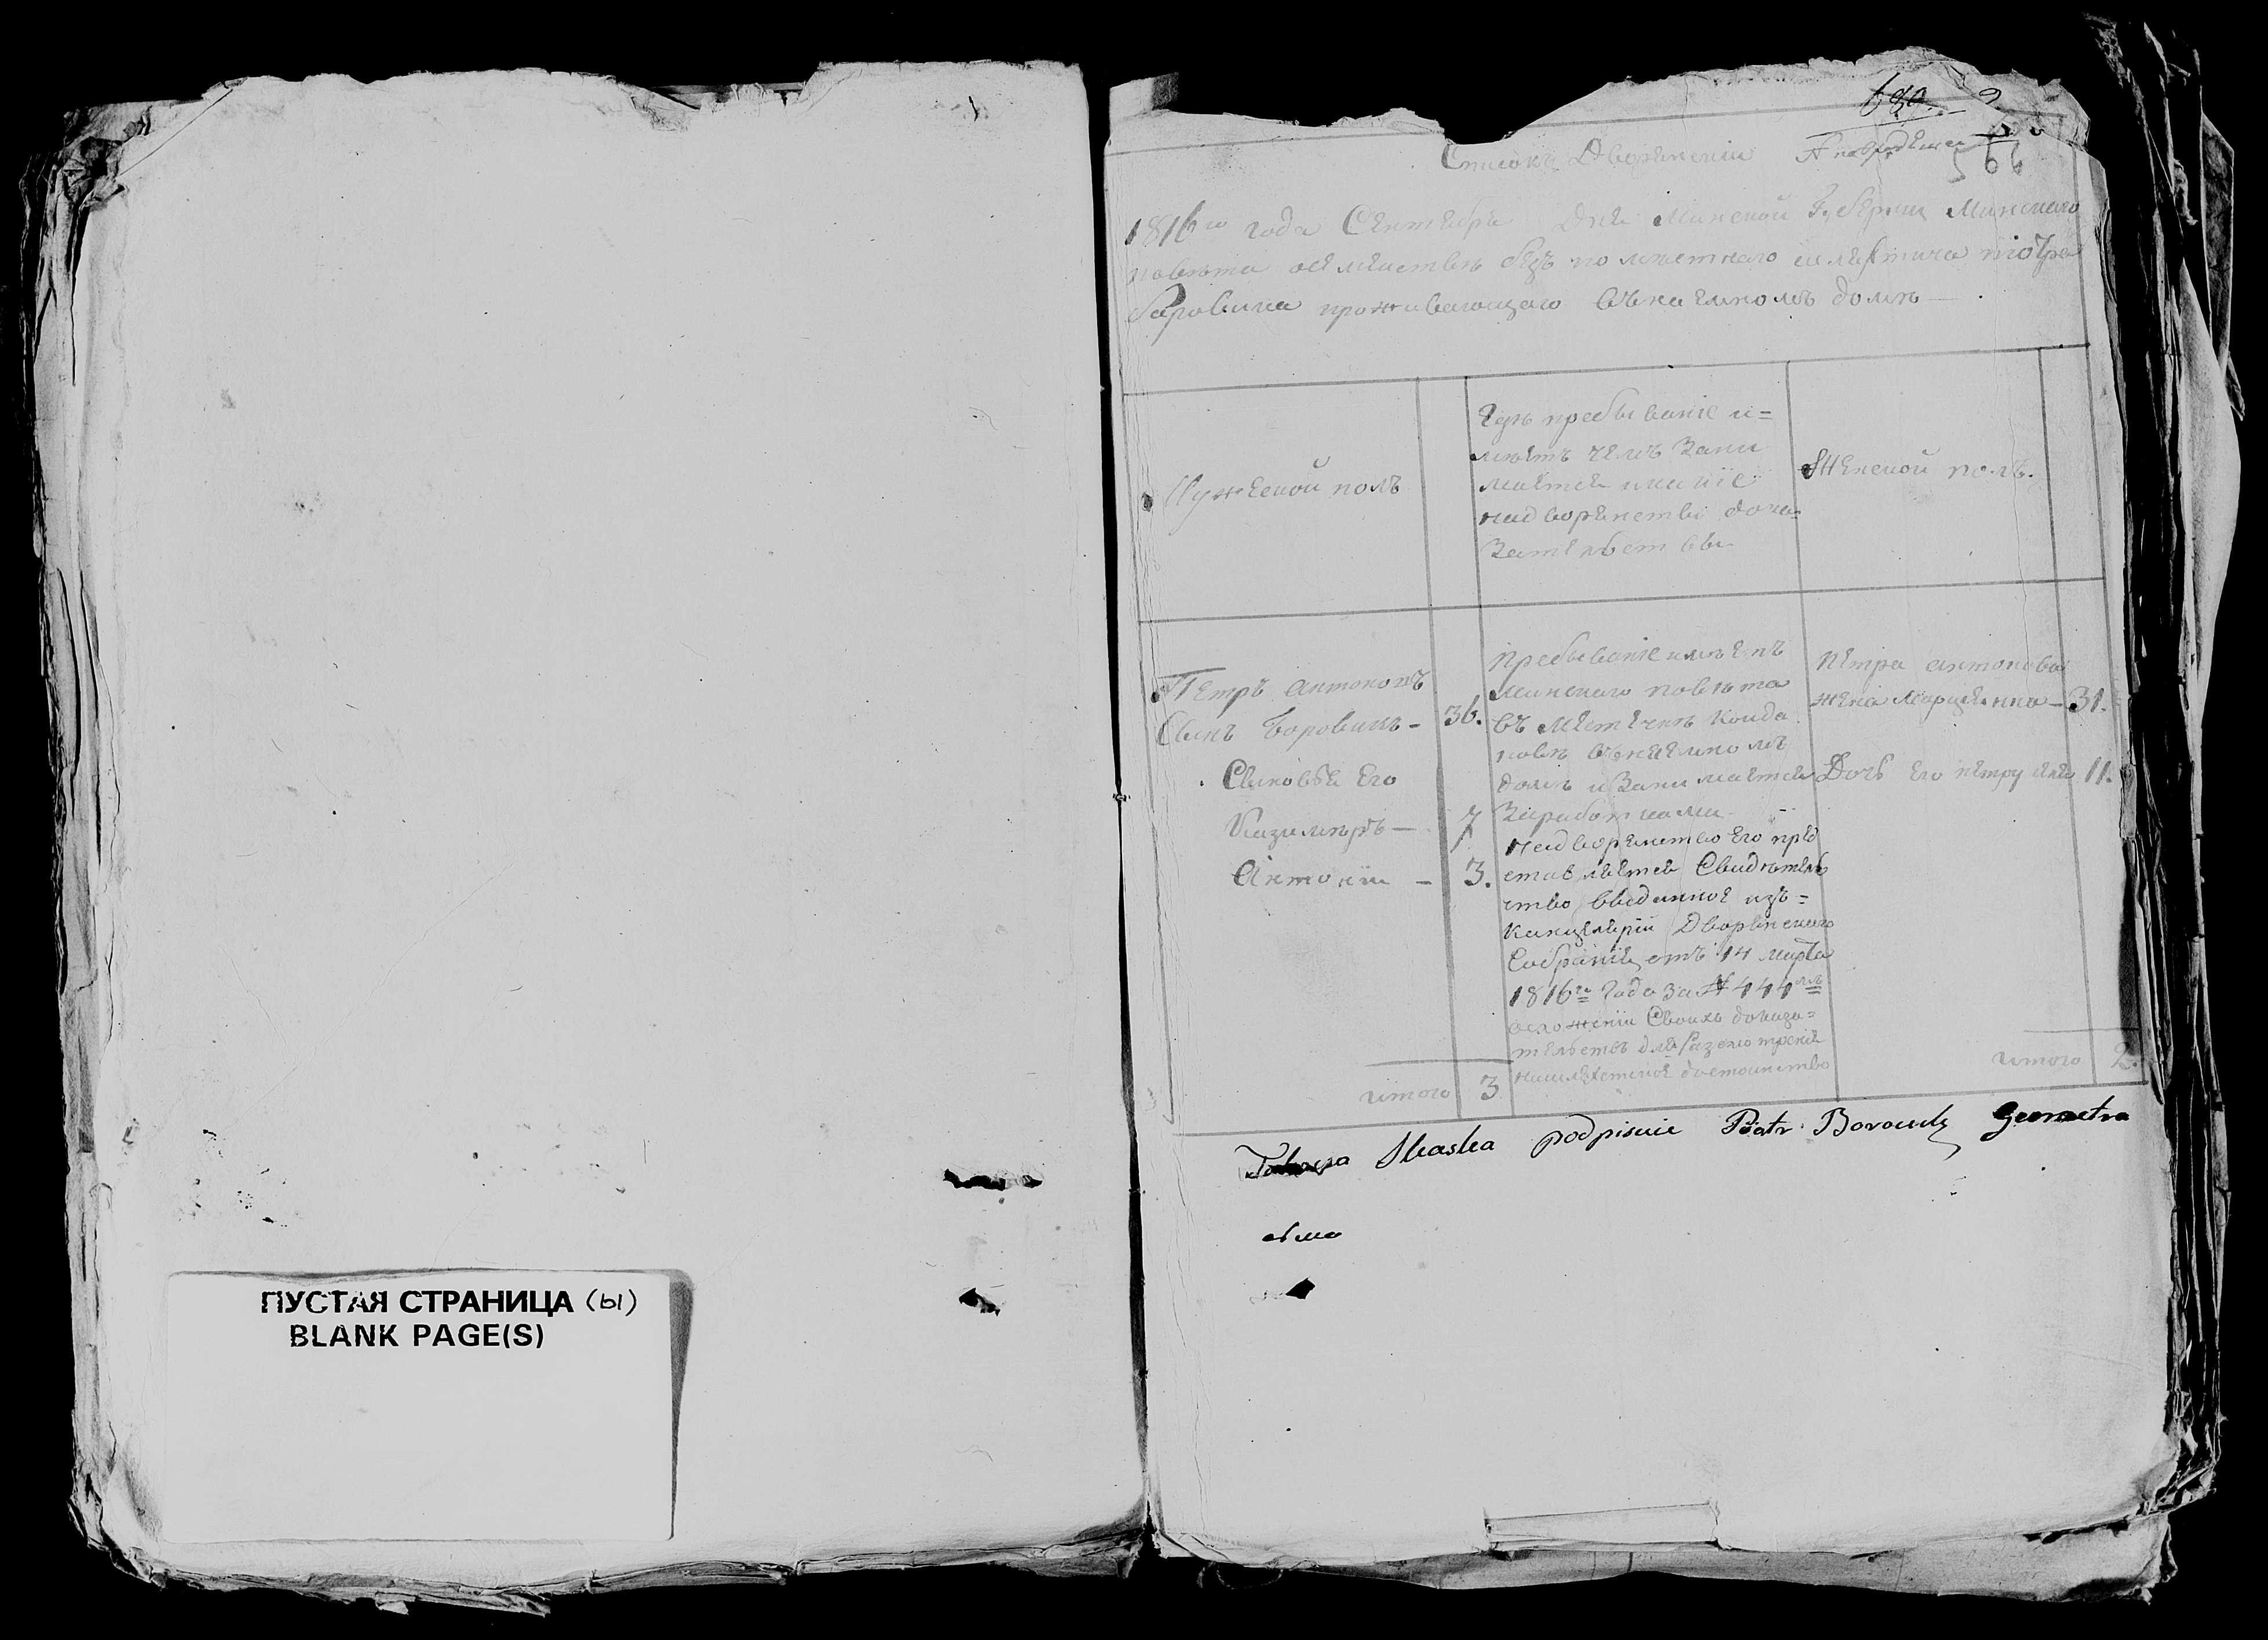 ПУСТАЯ СТРАНИЦА (ы)
BLANK PAGE(S)
Списокъ Дворянскій
566
1816го года Сентября дня Минской Губерніи Минскаго
повѣта осѣмействѣ безъ помѣстнаго шляхтича піотра
боровика проживающаго внаемномъ домѣ
Мужеской полъ
Гдѣ пребываніе и=
мѣетъ чемъ Зани
мается икакіе
надворянства дока=
Зательствы
Женской полъ.
Петръ антоновъ
Сынъ боровикъ - 36.
Сыновья Его
Казимиръ - 7
Антоній - 3.
итого 3
Пребываніе имѣетъ
Минскаго повѣта
въ местечкѣ Койда
новѣ внаемномъ
домѣ и Занимается
Заработками
надворянство Его пред
ставляется Свидѣтель
ство выданное изъ=
Канцеляріи Дворянскаго
Собранія отъ 14 марта
1816го Года за № 444мъ
осложеніи Своихъ доказа=
тельствъ для разсмотренія
нашляхетское достоинство
Петра антонова
жена Марцеянна - 31.
Дочь Его петрунеля 11.
итого 2.
podpisuie Piotr Borowik Geometra